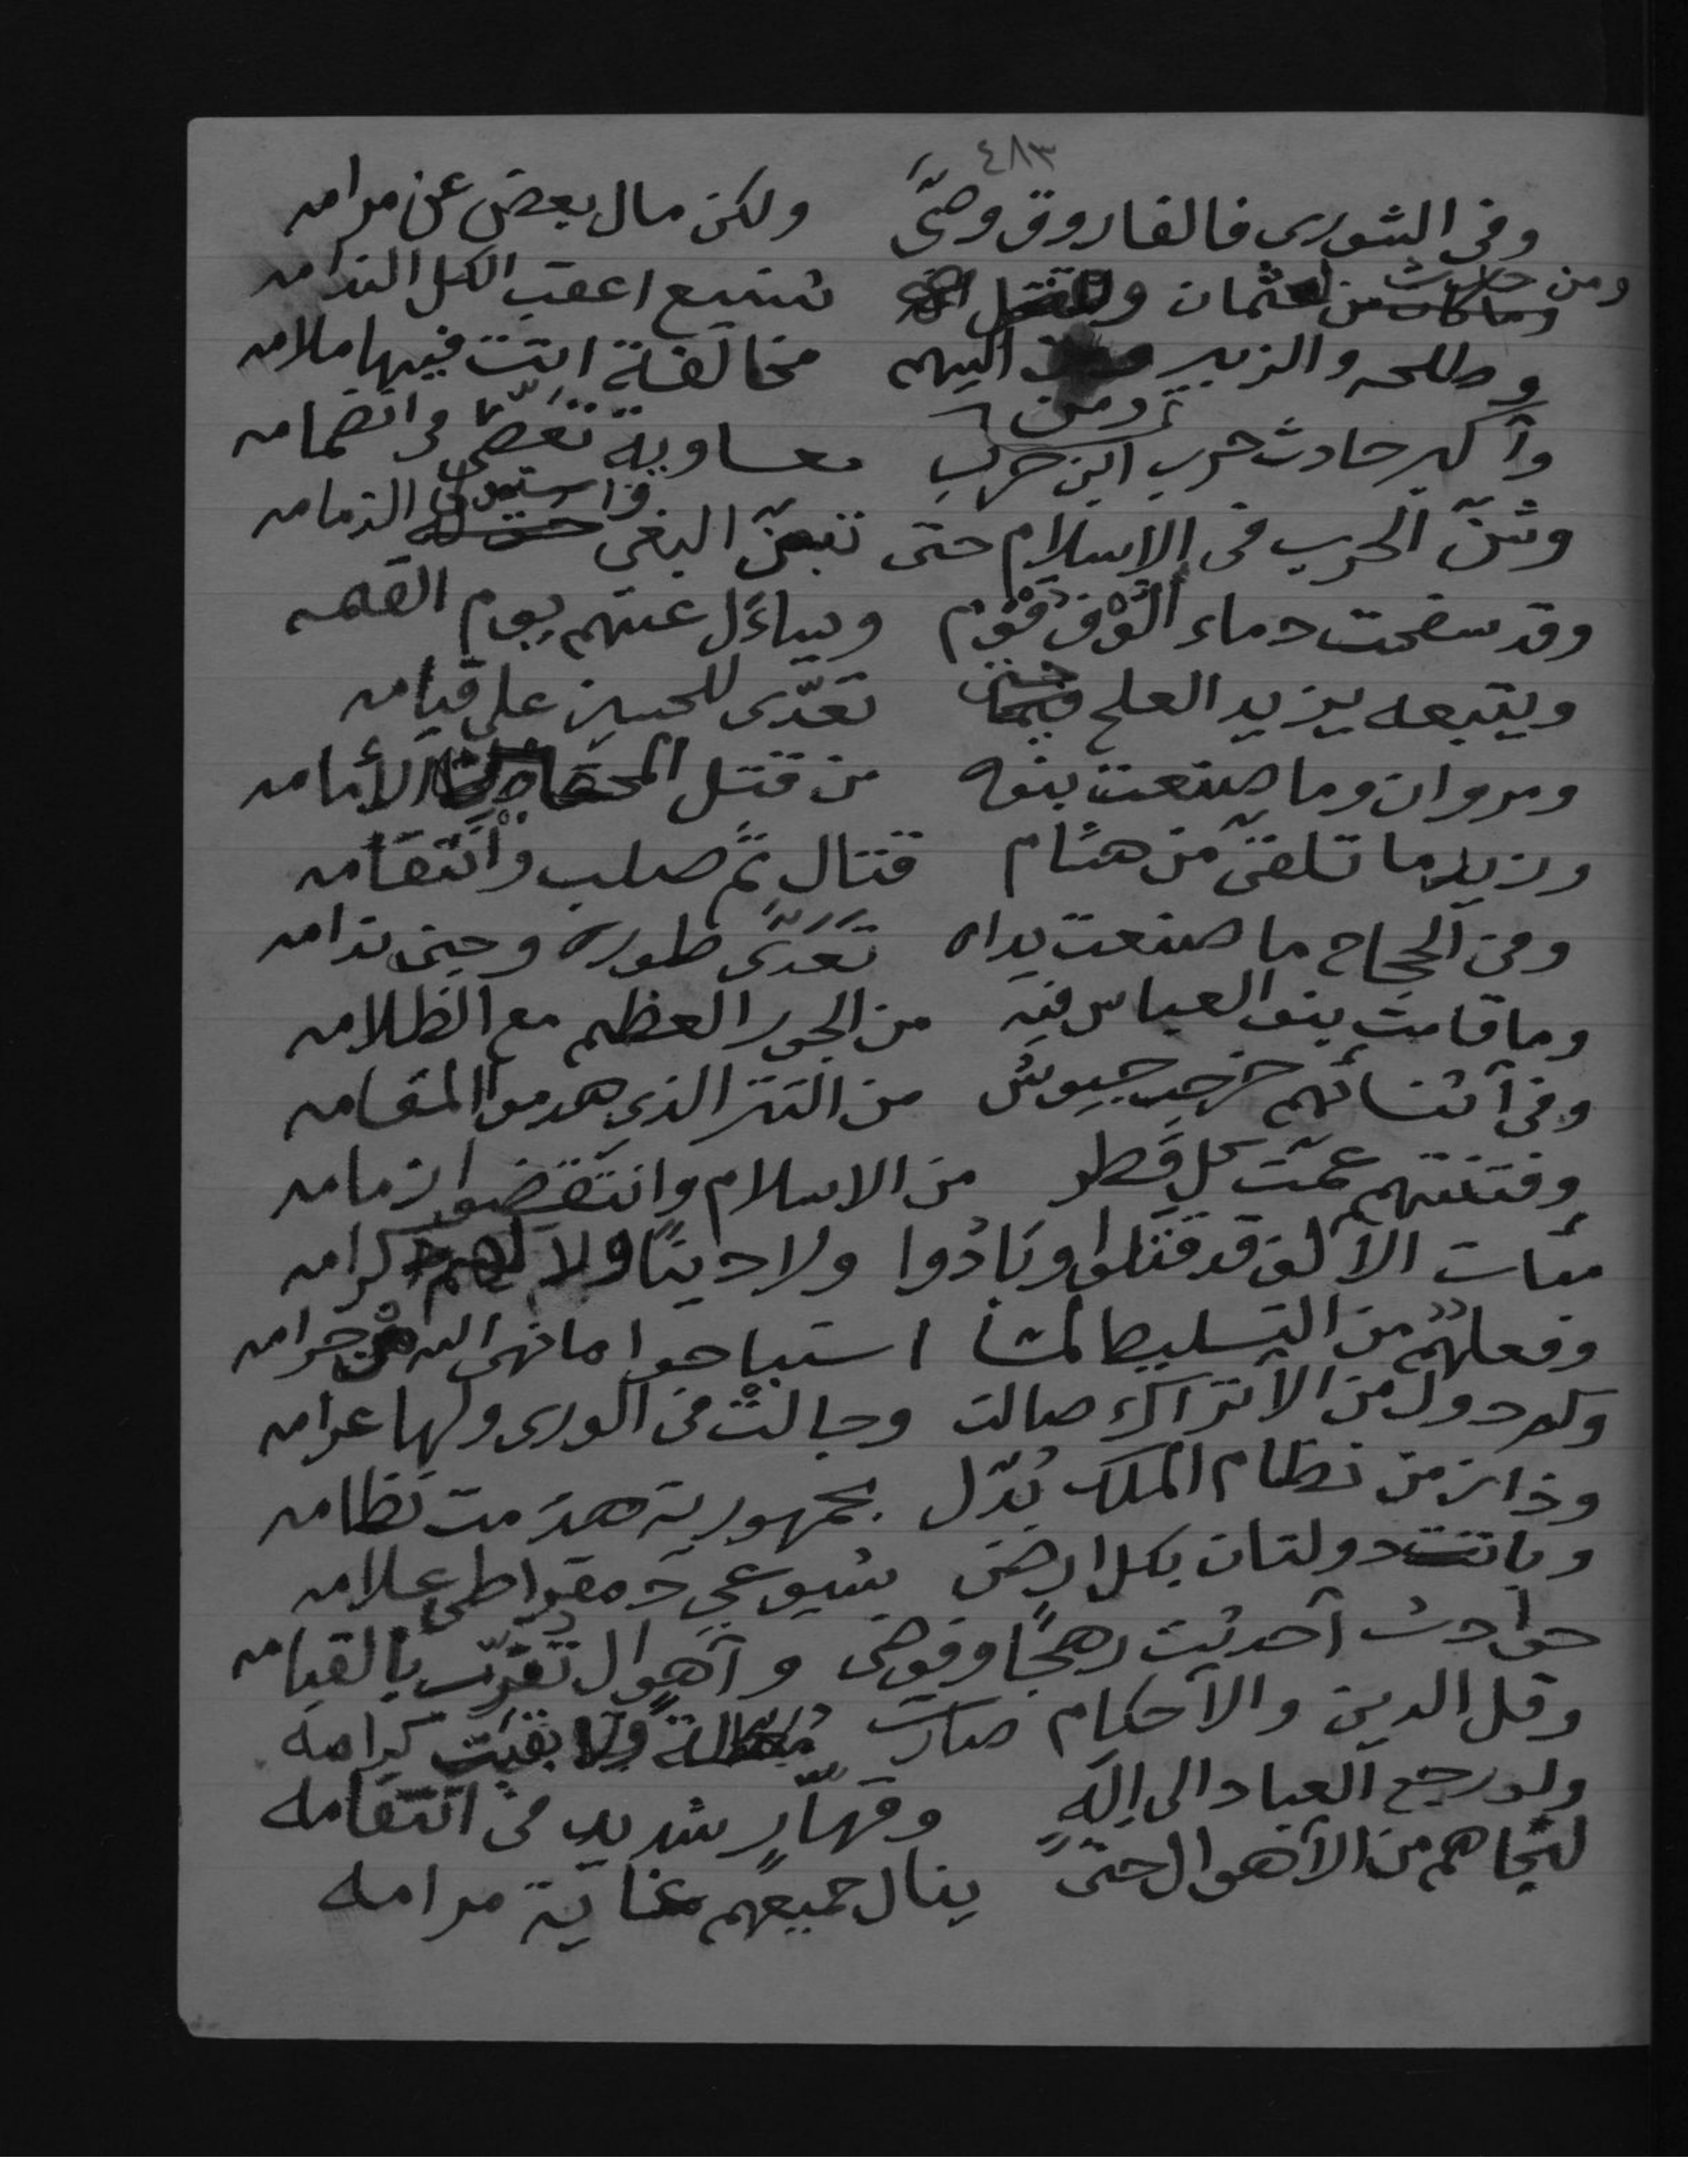 ٤٨٣
وفى الشورى فالفاروق وصَّى ولكن مال بعض عن مرامه
ومن حادث عثمان شنيع اعقب الكل الندامه
وطلحه والزبير ومن اليهم مخالفة اتت فيها ملامه
وأكبر حادث حرب ابن حرب معاوية تعصّى فى انضمامه
وشنّ الحرب فى الاسلام حتى تبعن البغى واستولى الزمامه
وقد سفحت دماء ألوف قوم ويساءل عنهم يوم القيمه
ويتبعه يزيد العلج حتى تعدّى للحسين على قيامه
ومروان وما صنعت بنوه من قتل الأمامه
وزيد ما تلقىّ من هشام قتال ثمّ صلب وانتقامه
ومن الحجاج ما صنعت يداه تعَدَّى طوره وجنى ندامه
وما قامت بنو العباس فيه من الجور العظيم مع الظلامه
وفى أثنائهم خرجت جيوش من التتر الذى هدموا المقامه
وفتنتهم عمّت كل قطر من الاسلام وانتقضوا زمامه
مئات الألف قد قتلوا وبادُوا ولا دينًا ولا لهم كرامه
وفعلهم من التسليط لمّا استباحوا ما نهى الله من حرامه
وكم دول من الأتراك صالت وجالت فى الورى ولها عرامه
وذا من نظام الملك بُدّل بجمهورية هدَمت نظامه
وباتت دولتان بكل ارض شيوعي دمقراطى علامه
حوادث أحدثت رهجًا وفوضى وأهوال تقرّب بالقيامه
وقل الدين والأحكام صارت معطلة ولا بقيت كرامه
ولو رجع العباد الى إلهٍ وقهّارٍ شديد فى انتقامه
لنجاهم من الأهوال حتى ينال جميعهم غاية مرامه